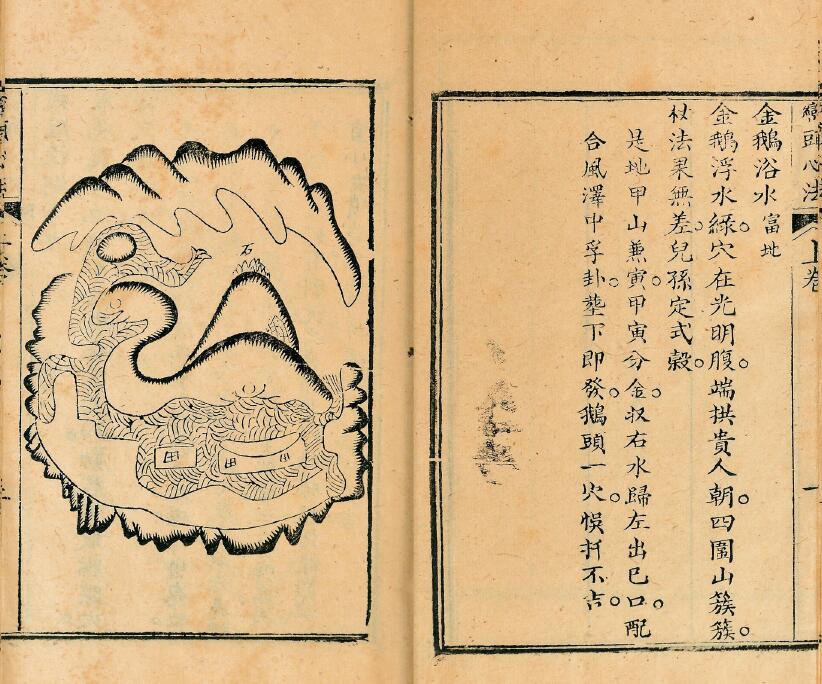 巒頭心法 上卷 一
金鵝浴水富地
金鵝浮水綠。穴在光明腹。端拱貴人朝。四圍山簇簇。
杖法果無差。兒孫定式穀。
是地甲山兼寅。甲寅分金。収右水歸左出巳口。配
合風澤中孚卦。塟下即發。鵝頭一穴。悞扦不吉。
石
田
田
田